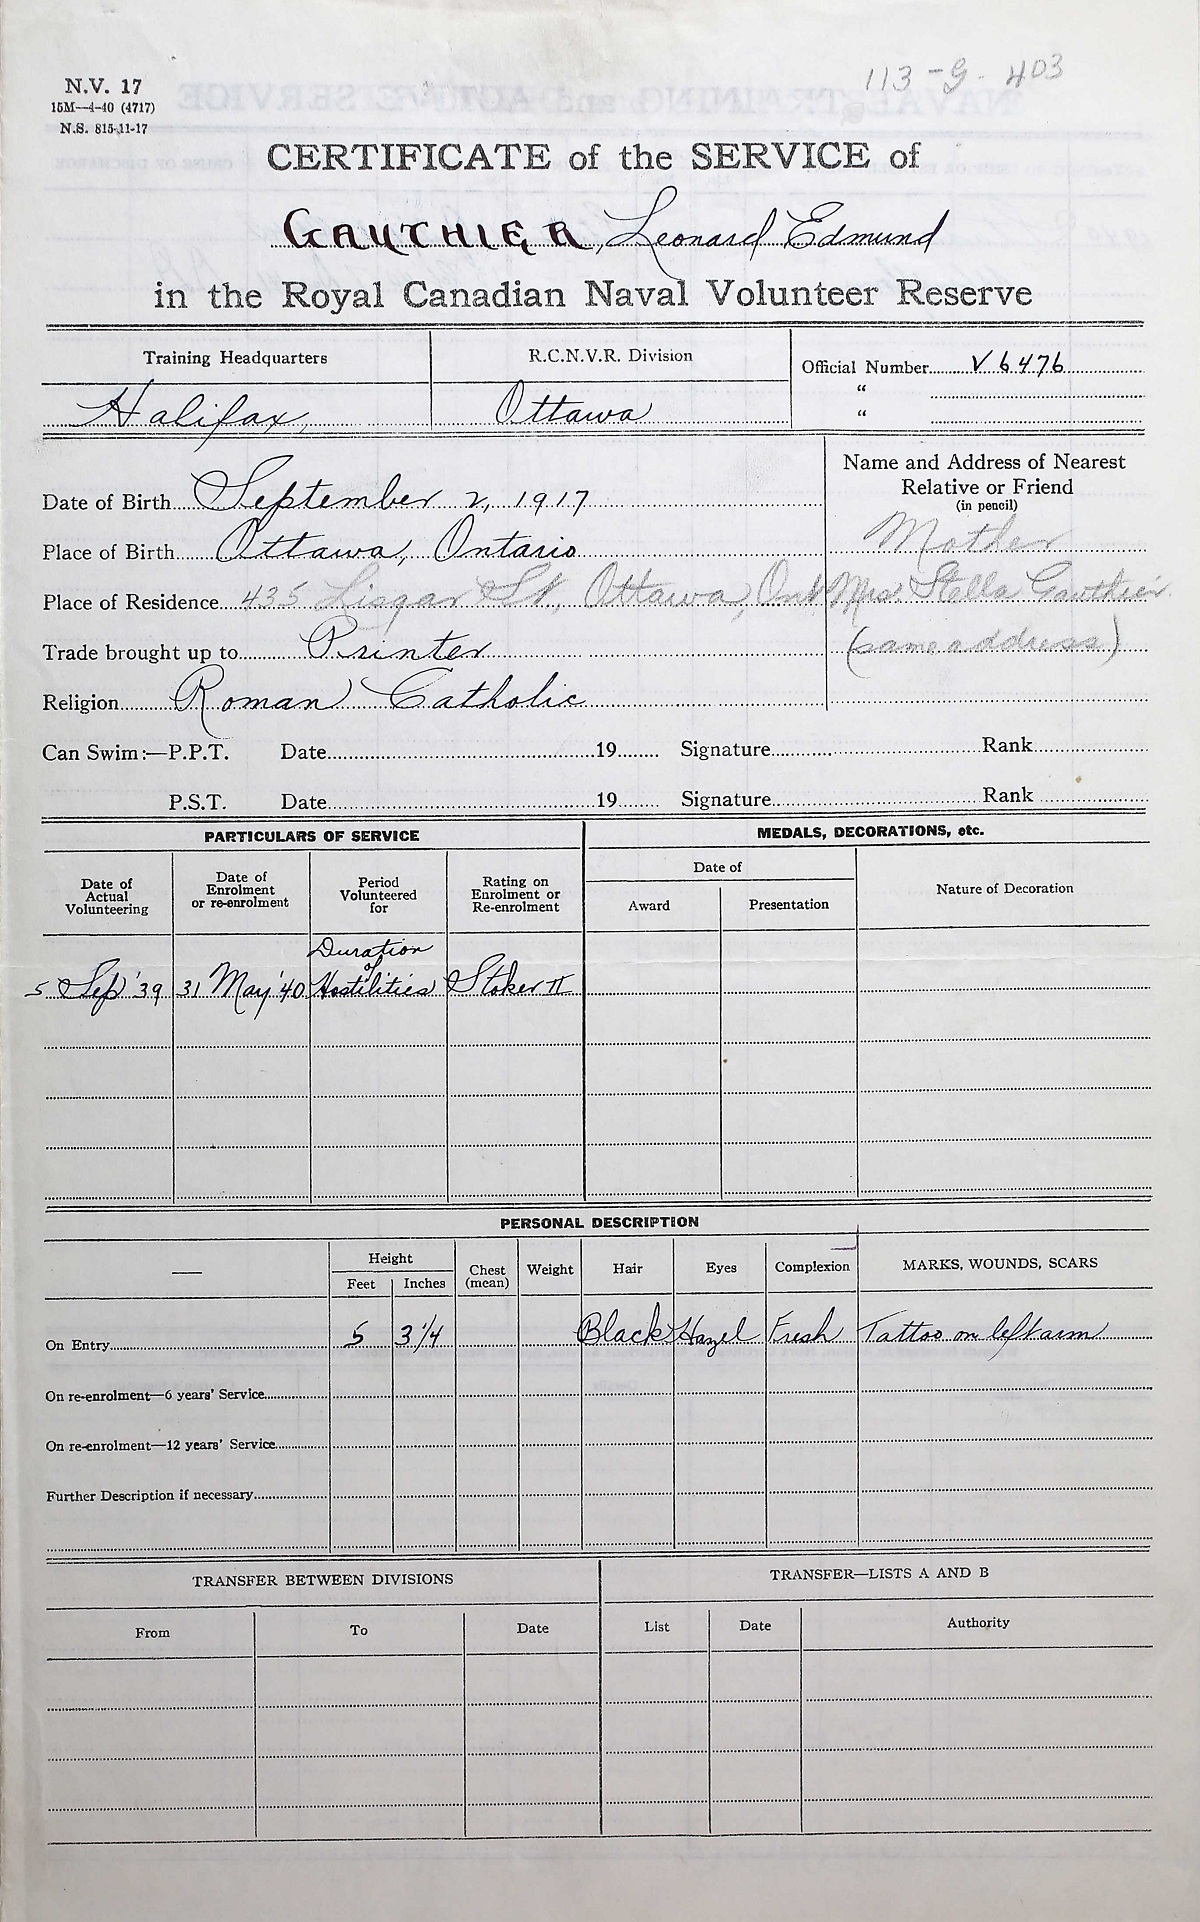 N.V. 17
15M—4-40 (4717)
N.S. 815-11-17
113-9-403
CERTIFICATE of the SERVICE of
GAUTHIER, Leonard Edmund
in the Royal Canadian Naval Volunteer Reserve
Training Headquarters R.C.N.V.R. Division Official Number V6476
"
Halifax, Ottawa "
Name and Address of Nearest
Relative or Friend
(in pencil)
Date of Birth September 2, 1917
Place of Birth Ottawa, Ontario Mother
Place of Residence 435 Lisgar St., Ottawa, Ont Mrs. Stella Gauthier
Trade brought up to Printer (same address)
Religion Roman Catholic
Can Swim:—P.P.T. Date 19 Signature Rank
P.S.T. Date 19 Signature Rank
PARTICULARS OF SERVICE MEDALS, DECORATIONS, etc.
Date of Actual Volunteering Date of Enrolment or re-enrolment Period Volunteered for Rating on Enrolment or Re-enrolment Date of Nature of Decoration
Award Presentation
5 Sep '39 31 May '40 Duration of Hostilities Stoker II
PERSONAL DESCRIPTION
— Height Chest (mean) Weight Hair Eyes Complexion MARKS, WOUNDS, SCARS
Feet Inches
On Entry 5 3¼ Black Hazel Fresh Tattoo on left arm
On re-enrolment—6 years' Service
On re-enrolment—12 years' Service
Further Description if necessary
TRANSFER BETWEEN DIVISIONS TRANSFER—LISTS A AND B
From To Date List Date Authority